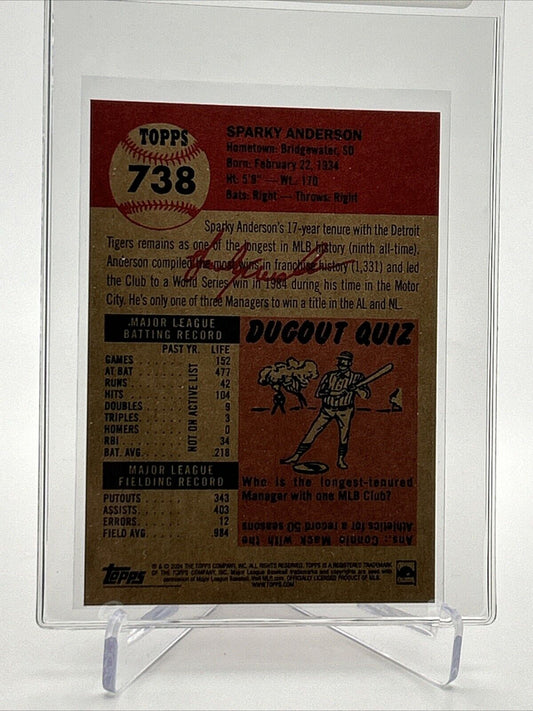 TOPPS
738
SPARKY ANDERSON
Hometown: Bridgewater, SD
Born: February 22, 1934
Ht: 5'9" — Wt.: 170
Bats: Right — Throws: Right
Sparky Anderson's 17-year tenure with the Detroit
Tigers remains as one of the longest in MLB history (ninth all-time).
Anderson compiled the most wins in franchise history (1,331) and led
the Club to a World Series win in 1984 during his time in the Motor
City. He's only one of three Managers to win a title in the AL and NL.
MAJOR LEAGUE
BATTING RECORD
PAST YR. LIFE
GAMES 152
AT BAT 477
RUNS 42
HITS 104
DOUBLES 9
TRIPLES 3
HOMERS 0
RBI 34
BAT. AVG. .218
NOT ON ACTIVE LIST
MAJOR LEAGUE
FIELDING RECORD
PUTOUTS 343
ASSISTS 403
ERRORS 12
FIELD AVG. .984
DUGOUT QUIZ
Who is the longest-tenured
Manager with one MLB Club?
Ans.: Connie Mack with the
Athletics for a record 50 seasons
Topps
® & © 2024 THE TOPPS COMPANY, INC. ALL RIGHTS RESERVED. TOPPS IS A REGISTERED TRADEMARK
OF THE TOPPS COMPANY, INC. Major League Baseball trademarks and copyrights are used with
permission of Major League Baseball. Visit MLB.com. OFFICIALLY LICENSED PRODUCT OF MLB.
WWW.TOPPS.COM